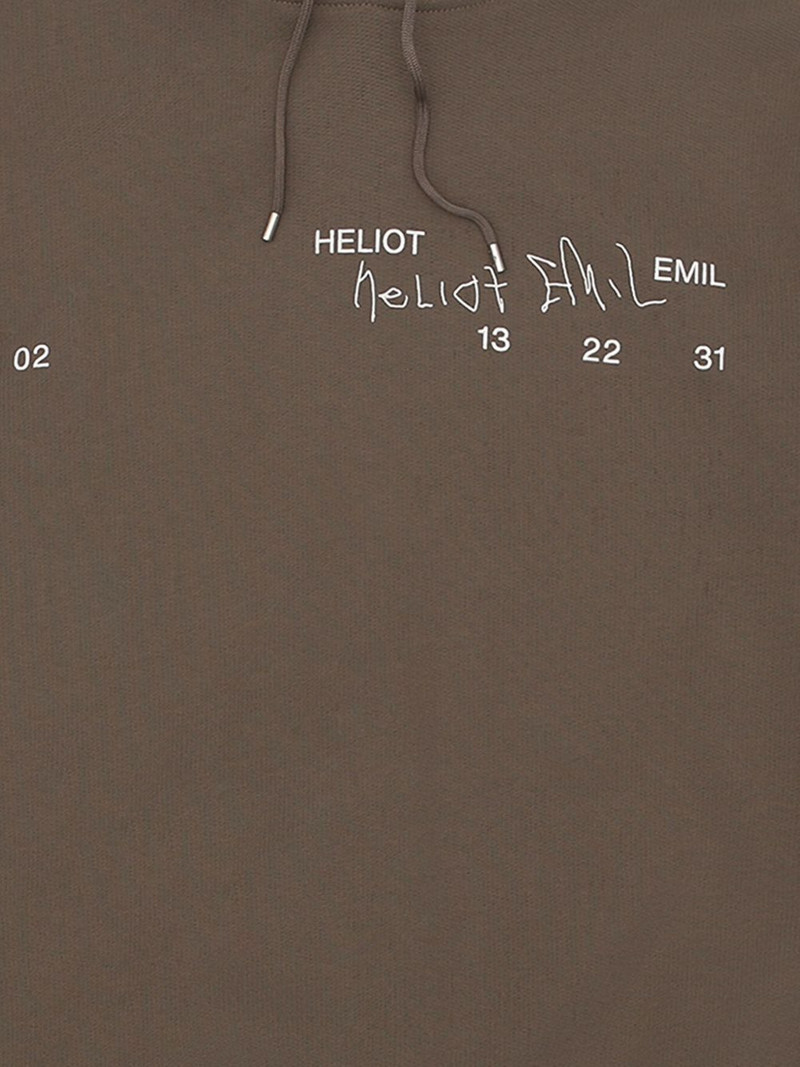 HELIOT
HELIOT EMIL EMIL
02 13 22 31